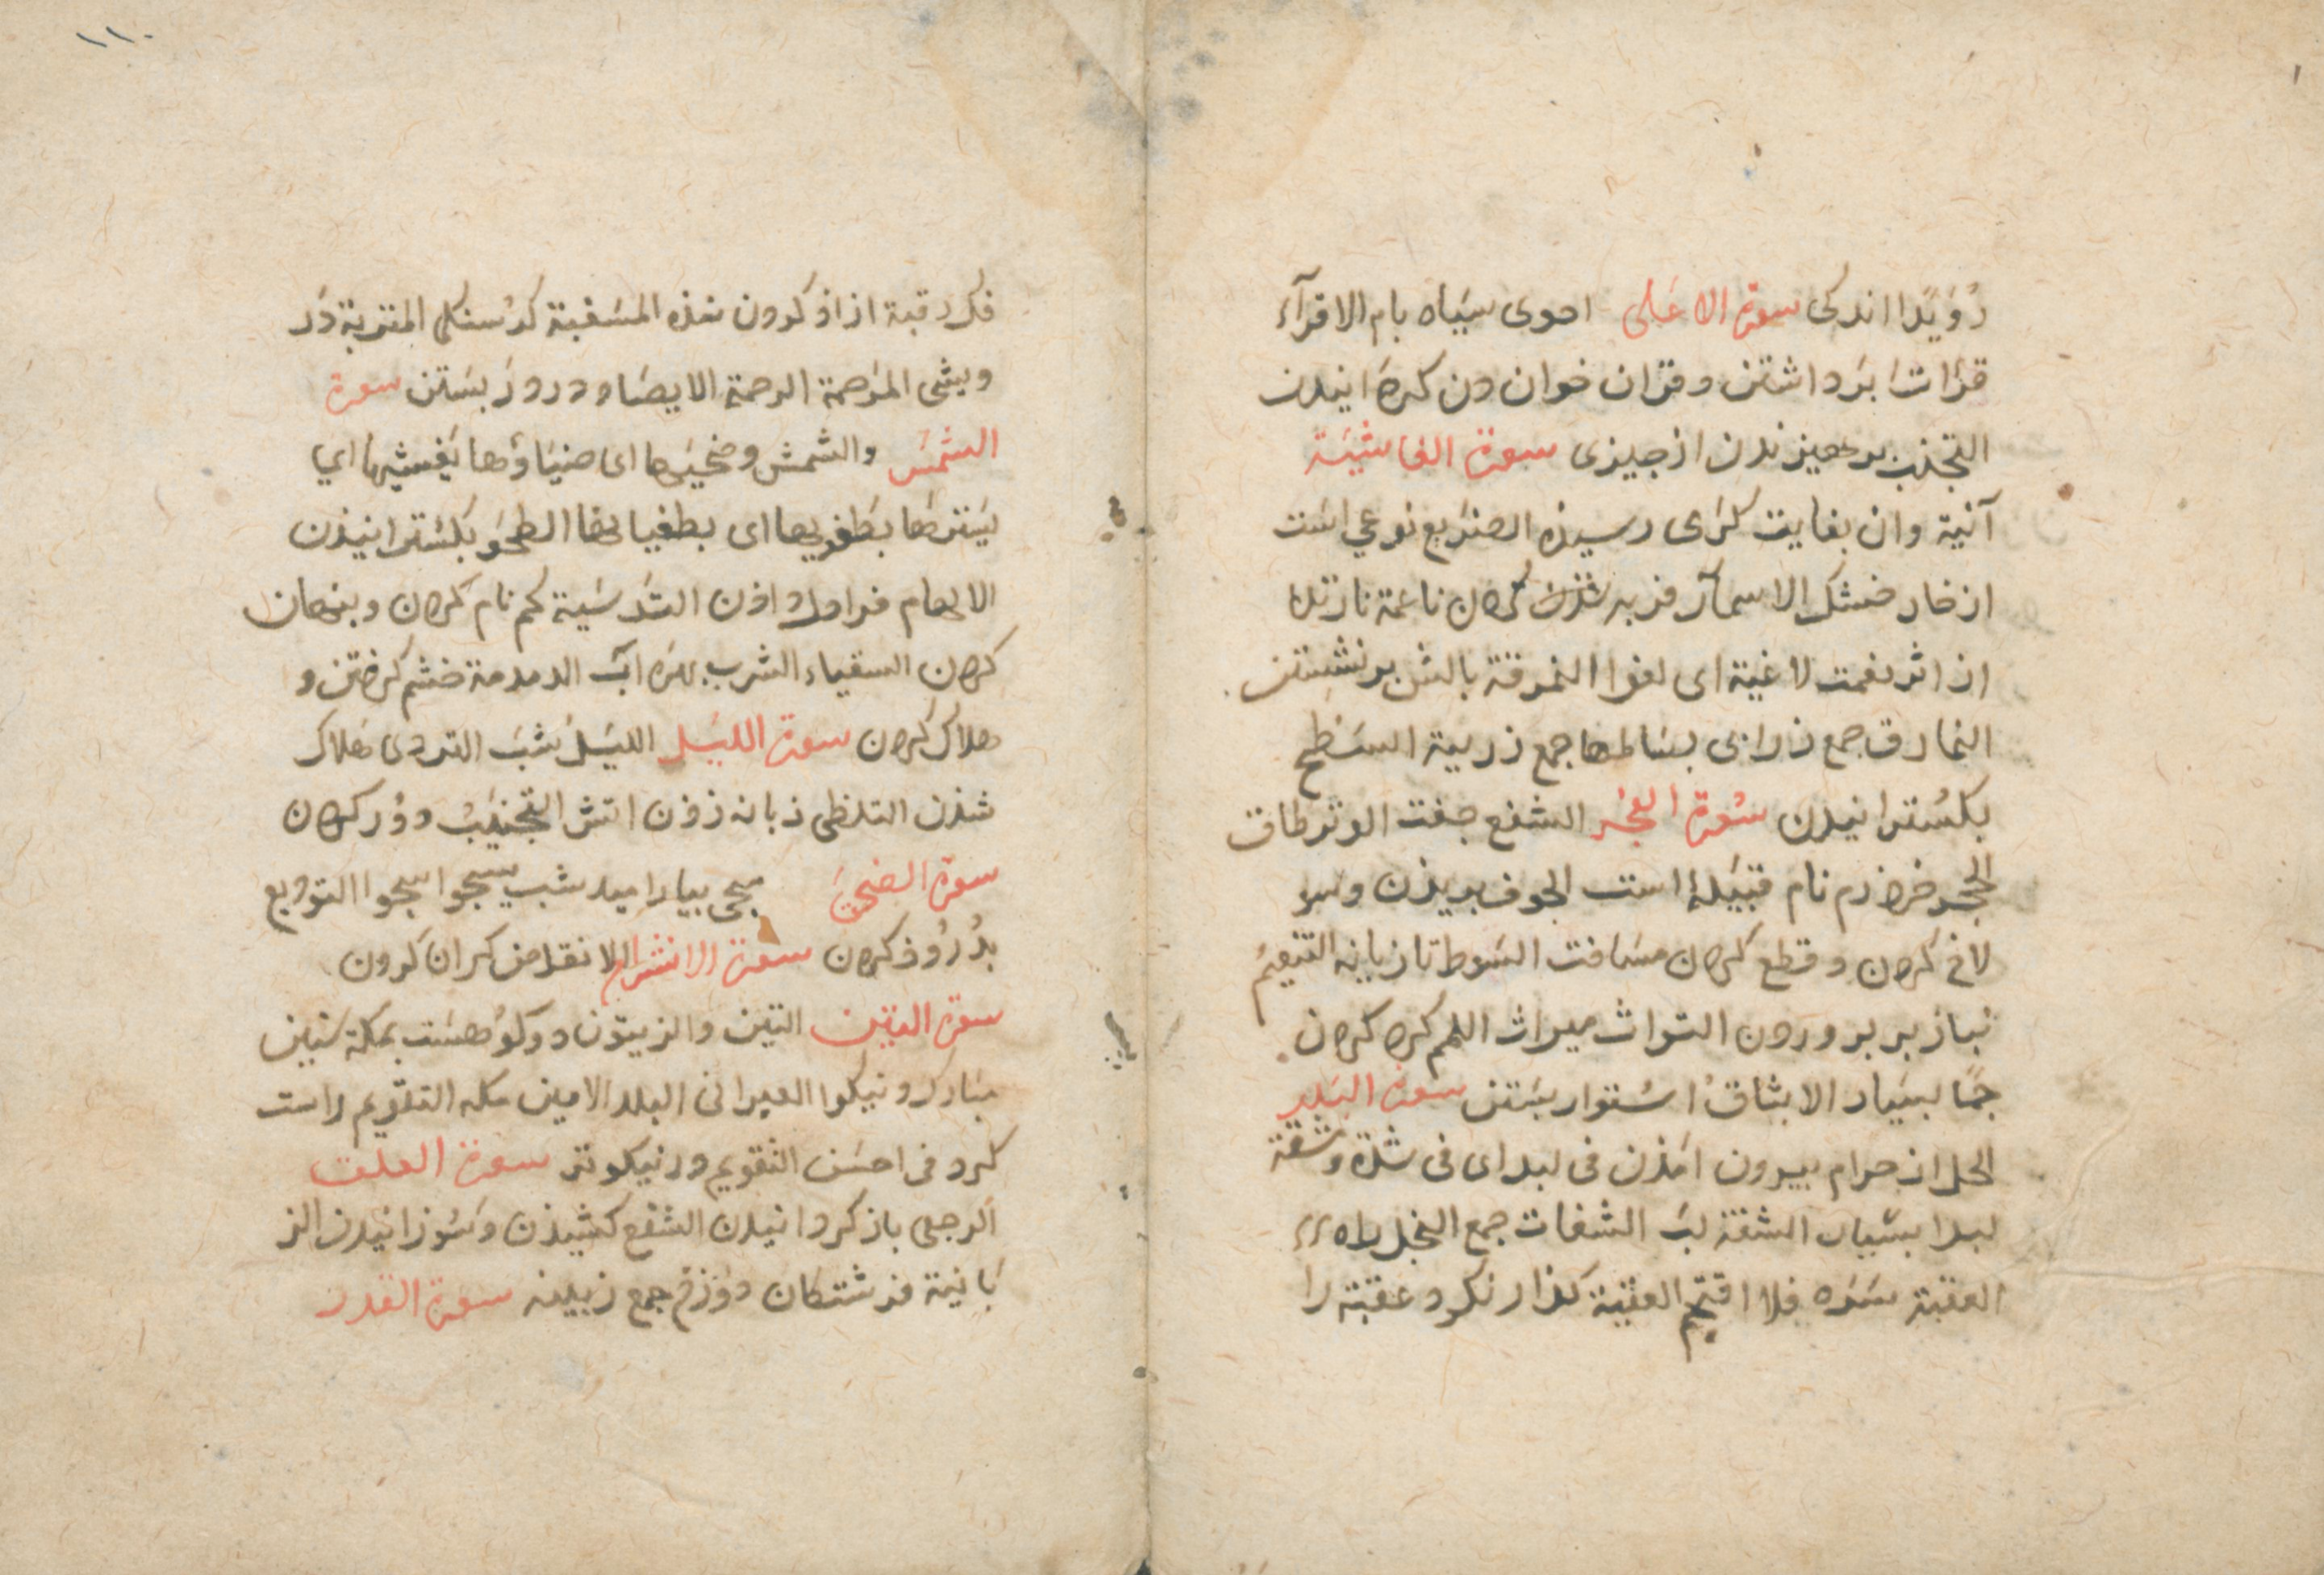 رُوَيْدًا اندکی سورة الاعلی احوی سیاه بام الاقرآء
قرات ابرداشتن وقران خوان دن کرد انیدن
التجنب برهیز ندن از جیزی سورة الغاشیة
آنیة وان بغایت کرمی رسیذه الضریع نوعي است
از خار خشک الاسمآر فربه شذن کردن ناعمة نازنذ
از اثر نعمت لاغیة ای لغوا النمرقة بالش بر نشستن
النمارق جمع زرابی بساطها جمع زربیة السطح
بکسترانیدن سورة الفجر الشفع جفت الوتر طاق
الحجر خرد ارم نام قبیلهٔ است الجوف بریذن وسو
لاخ کردن وقطع کردن مسافت السوط تازیانه التنعیم
نباز بر برورون التراث میراث اللمم کرد کردن
جمًا بسیار الایثاقُ استوار بستن سورة البلد
الحل از حرام بیرون امذن فی کبد ای فی شدة ومشقة
لبدا بسیار الشفة لب الشفات جمع النجد راه
العقبة سره فلا اقتحم العقبة کذار نکرد عقبة را
۱۱۰
فک رقبة ازاذ کردون بنده المسغبة کرسنکی المتربة در
ویشی المرحمة الرحمة الایصاد در وز بستن سورة
الشمس والشمش وضحیها ای ضیاؤها یغشیها اي
یسترها بطغویها ای بطغیانها الطحو بکسترانیذن
الالهام فرا دل داذن التدسیة کم نام کردن وبنهان
کردن السقیاء الشرب بهره آب الدمدمة خشم کرفتن و
هلاک کردن سورة اللیل اللیل شب التردی هلاک
شذن التلظی زبانه زذن اتش التجنیب دور کردن
سورة الضحی سجی بیارامید شب یسجوا سجوا التودیع
بدرود کردن سورة الانشراح الانقاض کران کردون
سورة التین التین والزیتون دو کوه هست بمکه سنین
مبارک ونیکوا العبرانی البلد الامین مکه التقویم راست
کرد فی احسن التقویم در نیکوتر سورة العلق
الرجعی باز کردانیدن السفع کشیذن وسوزانیدن الز
بانیة فرشتکان دوزخ جمع زبینه سورة القدر